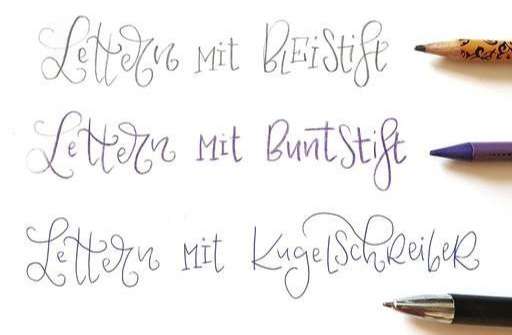 Lettern mit Bleistift
Lettern mit Buntstift
Lettern mit Kugelschreiber